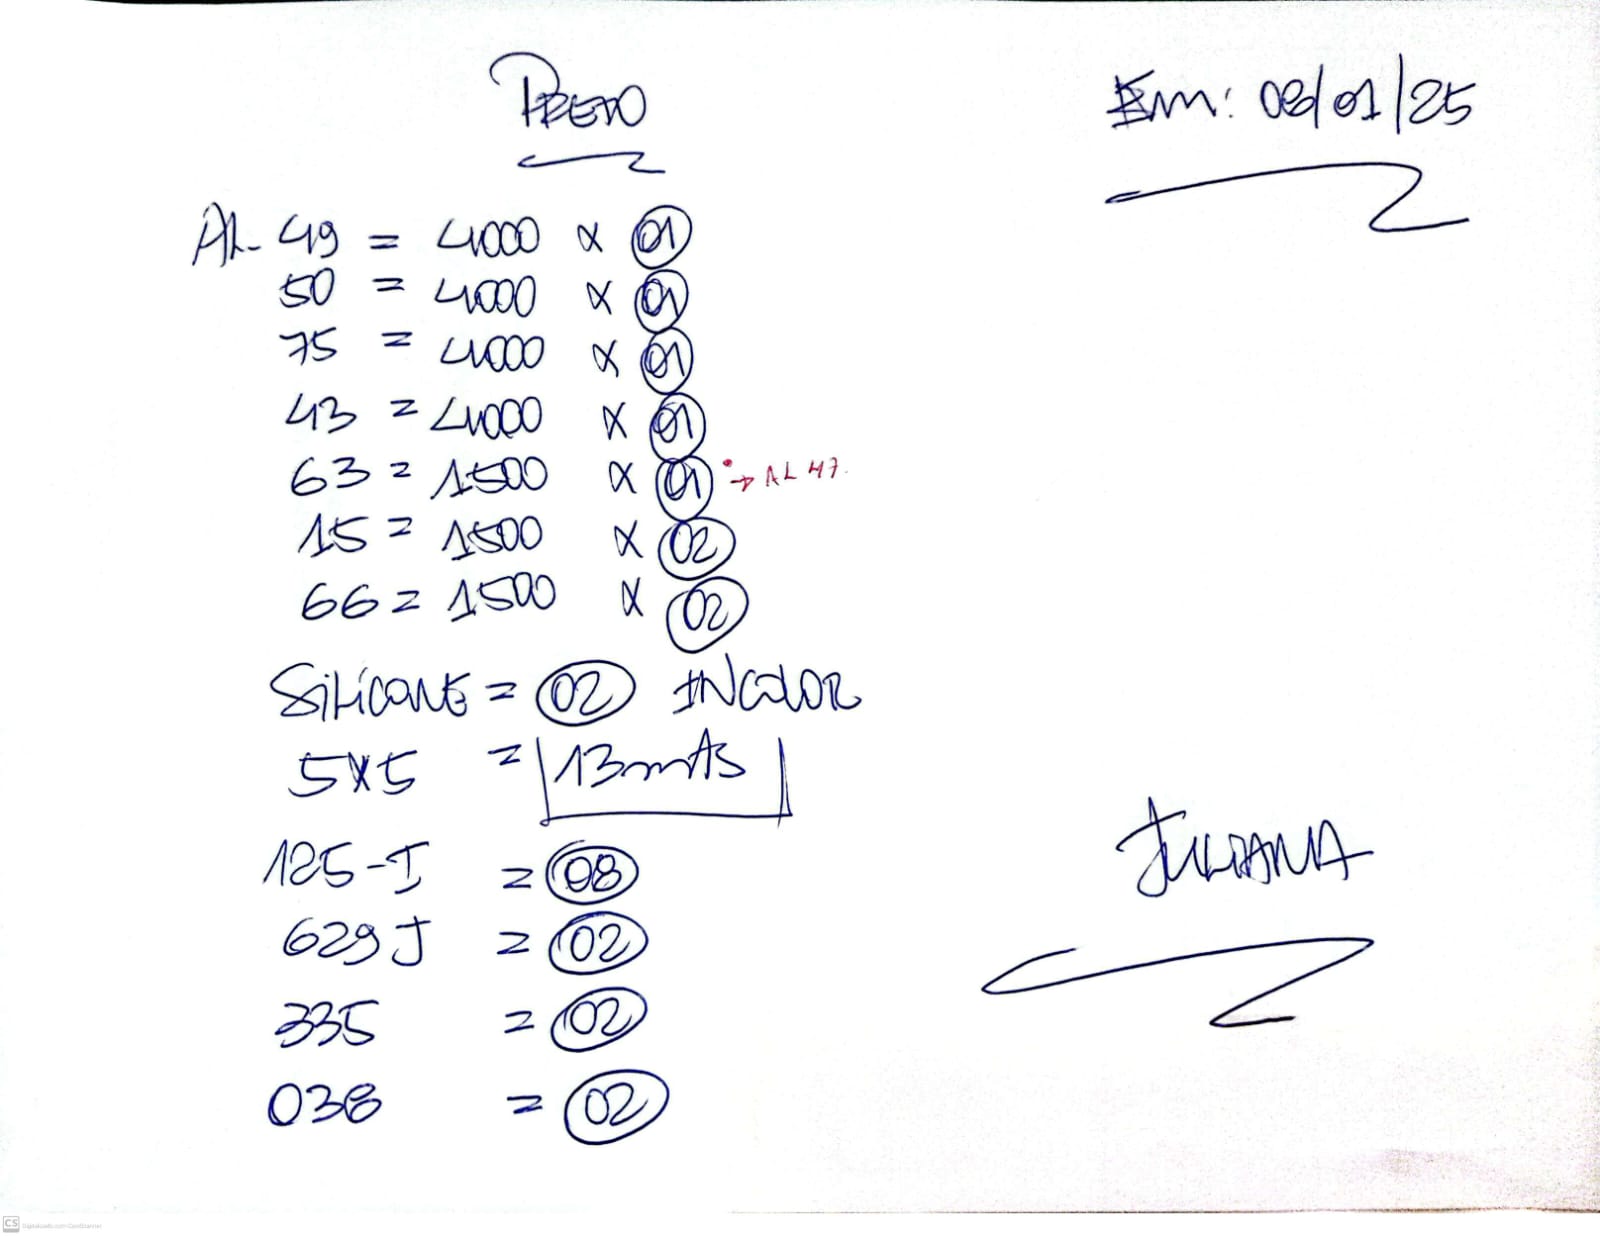 PRETO
Em: 08/01/25
AL- 49 = 4000 x 01
50 = 4000 x 01
75 = 4000 x 01
43 = 4000 x 01
63 = 1500 x 01 • → AL 47.
15 = 1500 x 02
66 = 1500 x 02
SiLicONE = 02 INCOLOR
5x5 = 13mts
125-I = 08
629 J = 02
335 = 02
038 = 02
JULIANA
CS Digitalizado com CamScanner